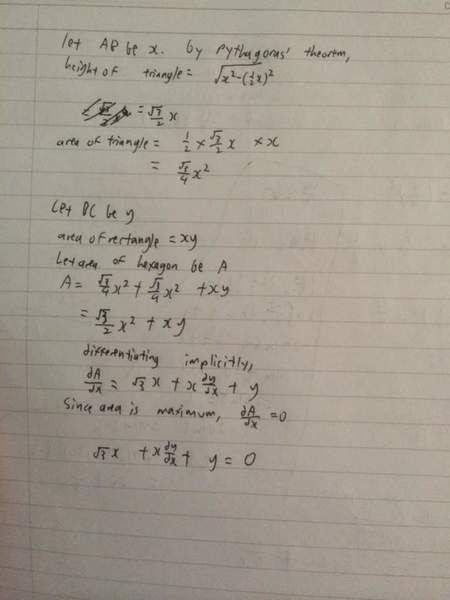 let AB be x. by pythagoras' theorem,
height of triangle = √x²-(½x)²
= √3/2 x
area of triangle = 1/2 × √3/2 x × x
= √3/4 x²
Let BC be y
area of rectangle = xy
Let area of hexagon be A
A = √3/4 x² + √3/4 x² + xy
= √3/2 x² + xy
differentiating implicitly,
dA/dx = √3 x + x dy/dx + y
Since area is maximum, dA/dx = 0
√3 x + x dy/dx + y = 0